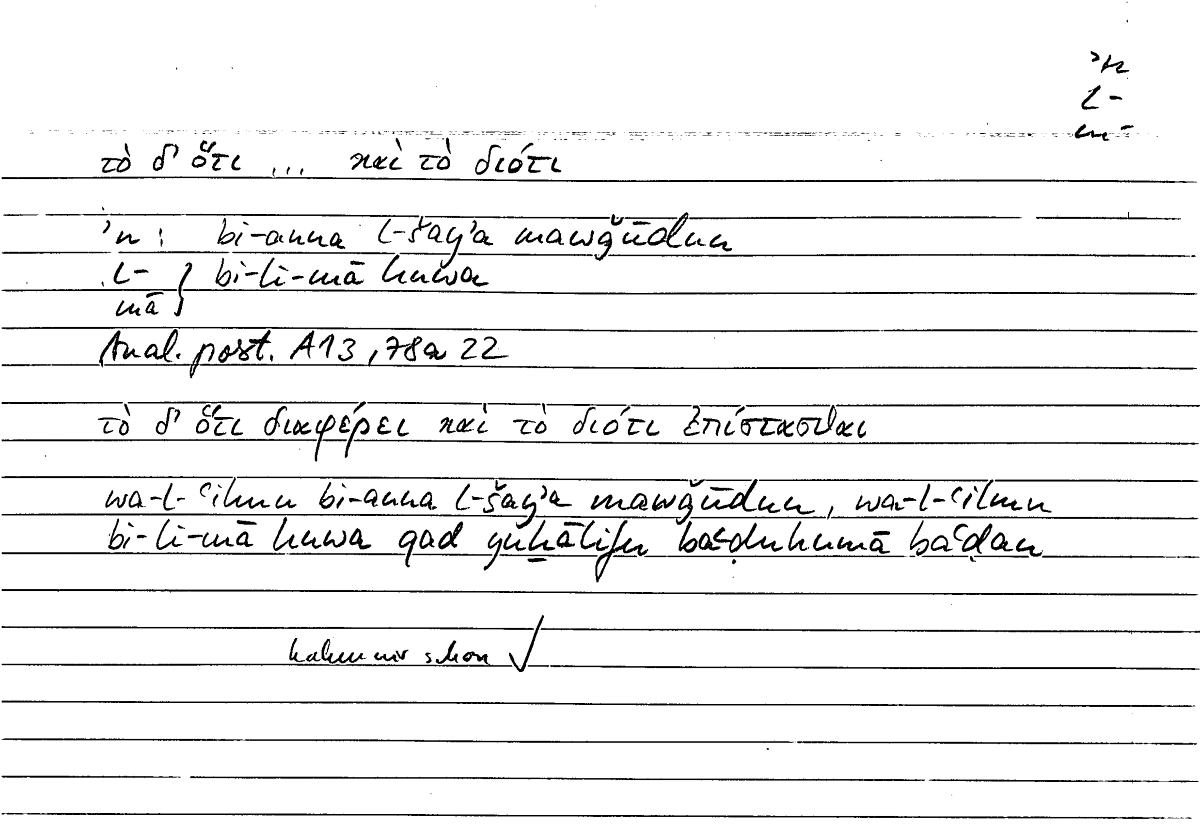 ʾn
l-
mā
τὸ δ' ὅτι ... καὶ τὸ διότι
ʾn : bi-anna l-šayʾa mawǧūdun
l- } bi-li-mā huwa
mā
Anal. post. A13, 78a 22
τὸ δ' ὅτι διαφέρει καὶ τὸ διότι ἐπίστασθαι
wa-l-ʿilmu bi-anna l-šayʾa mawǧūdun, wa-l-ʿilmu
bi-li-mā huwa qad yuḫālifu baʿḍuhumā baʿḍan
haben wir schon √